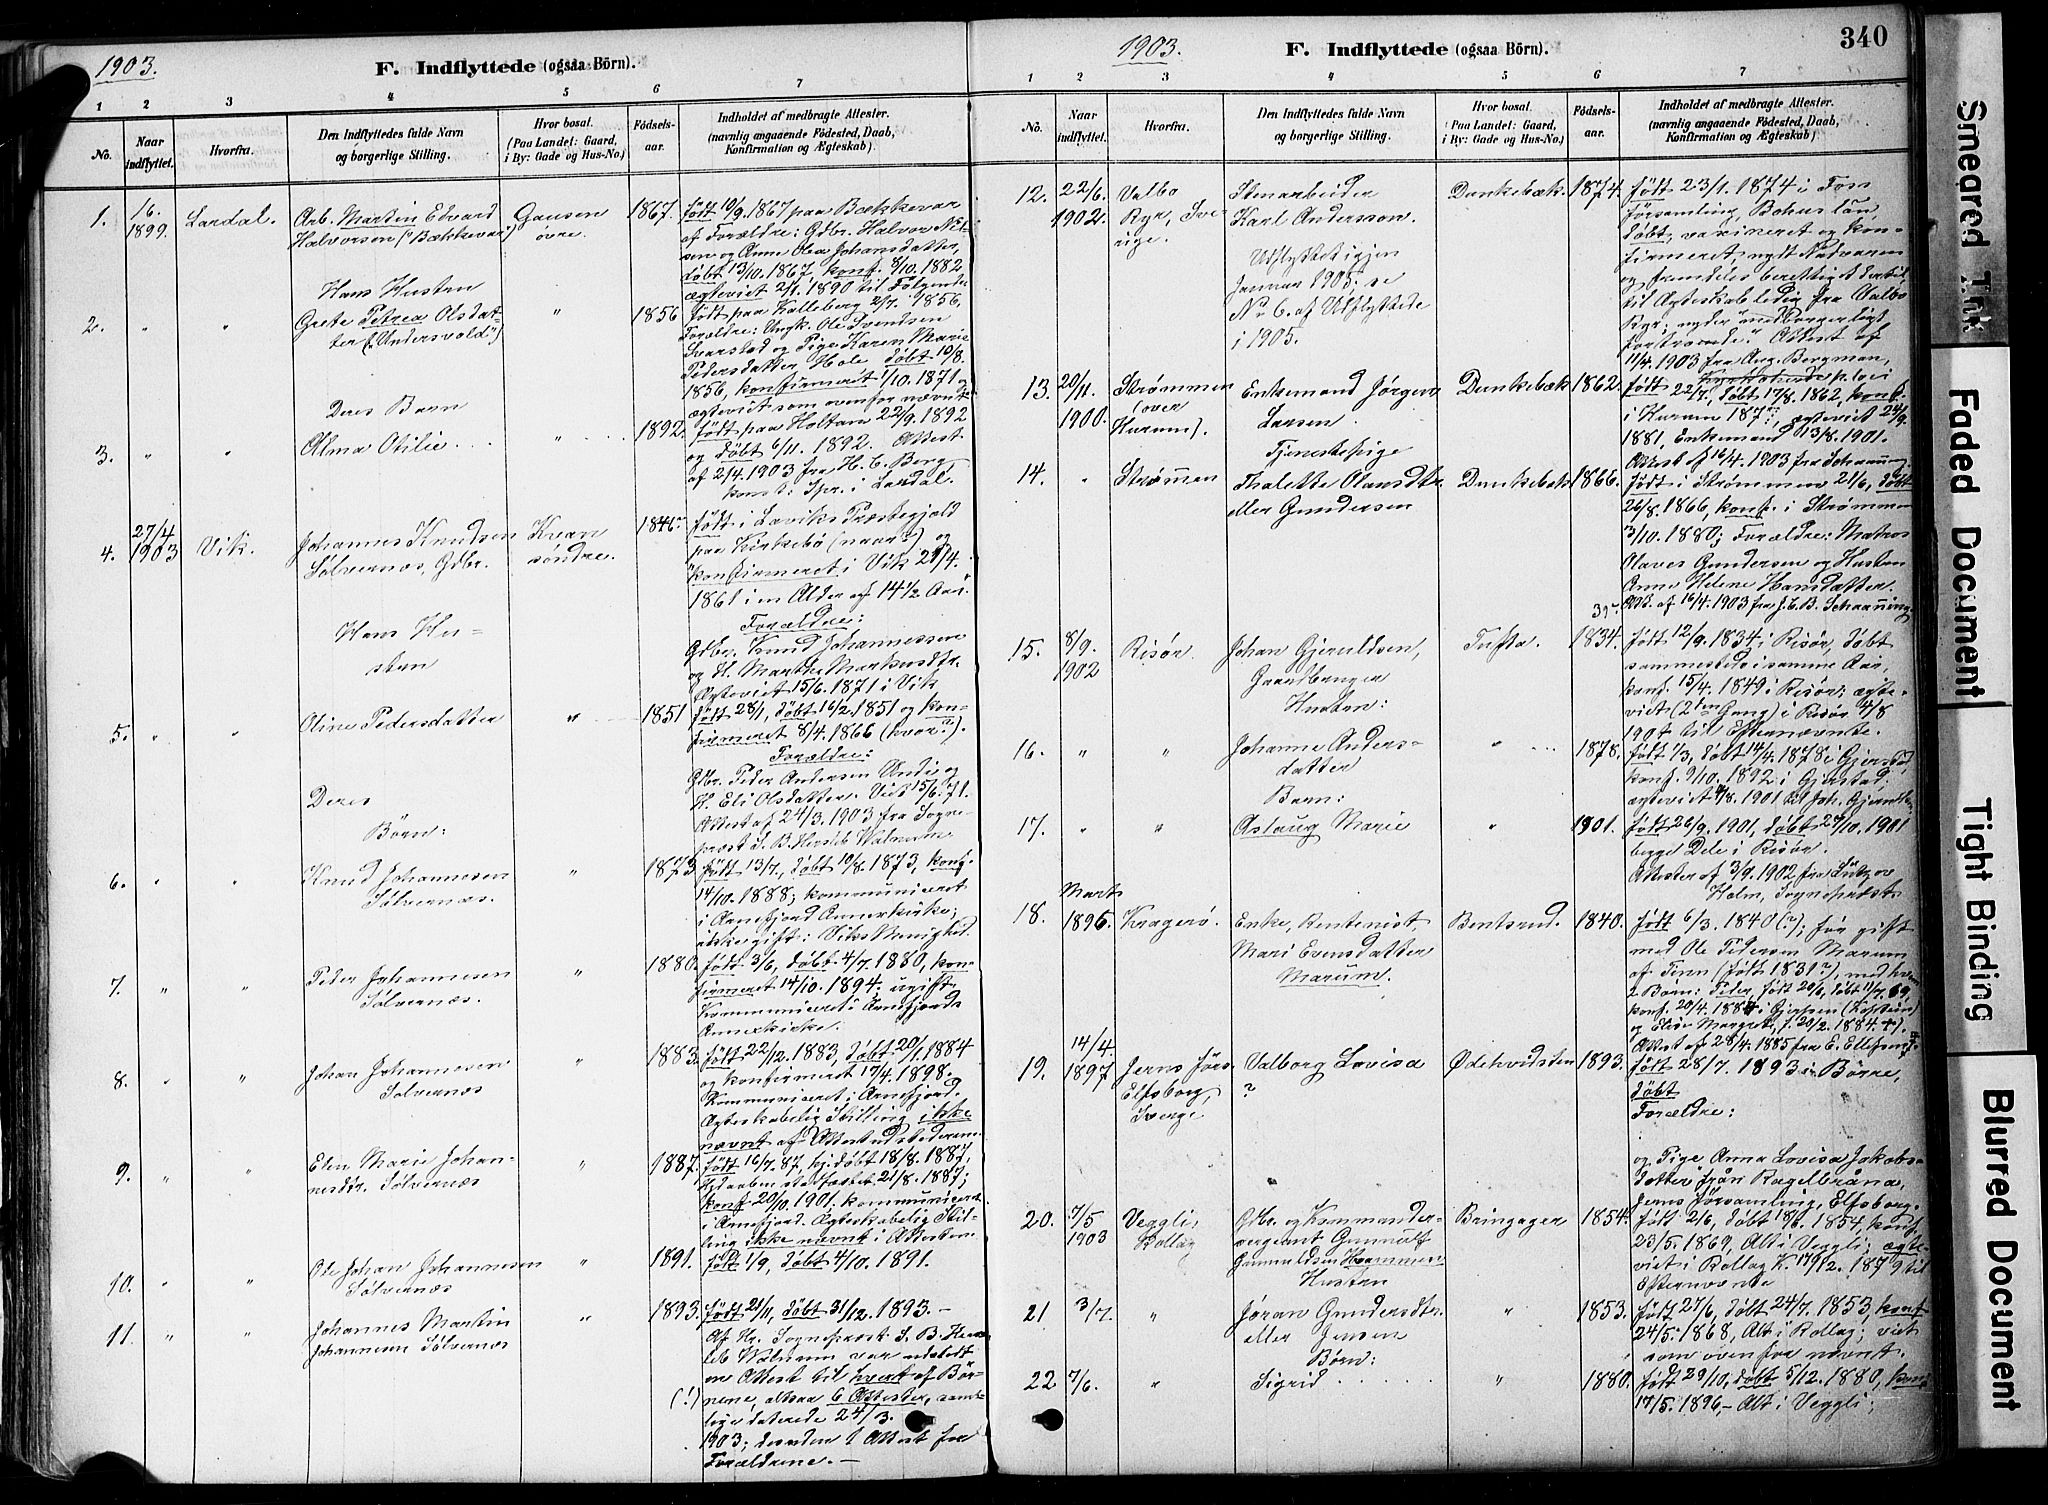 1903.
F. Indflyttede (ogsaa Börn).
1 2 3 4 5 6 7
No.
Naar indflyttet.
Hvorfra.
Den Indflyttedes fulde Navn
og borgerlige Stilling.
Hvor bosat.
(Paa Landet: Gaard,
i By: Gade og Hus-No.)
Födsels-
aar.
Indholdet af medbragte Attester.
(navnlig angaaende Födested, Daab,
Konfirmation og Ægteskab)
1. 16. 1899. Lardal. Arb. Martin Edvard
Halvorsen ("Bækkevar")
Gausen
övre.
1867.
født 10/9. 1867 paa Bækkevar
af Forældre: Gdbr. Halvor Nil-
sen og Anne Olea Johansdatter,
døbt 13/10. 1867, konf. 8/10. 1882
ægteviet 2/1. 1890 til Følgende
Hans Hustru
2. " " Grete Petrea Olsdat-
ter ("Andersvold")
" 1856
født paa Kalleberg 2/7. 1856,
Forældre: Ungk. Ole Svendsen
Svarstad og Pige Karen Marie
Pedersdatter Hole, døbt 10/8.
1856, konfirmeret 1/10. 1871 og
ægteviet som ovenfor nævnt
Deres Barn
3. " " Alma Otilie . . . " . . . 1892.
født paa Holtam 22/9. 1892
og døbt 6/11. 1892. Attest
af 2/4. 1903 fra H. C. Berg
konst: Spr. i Lardal.
4. 27/4 1903 Vik. Johannes Knudsen
Sølvernæs, Gdbr.
Kvan
søndre.
1846?
født i Laviks Præstegjæld
paa Kirkebø (naar?) og
"konfirmeret i Vik 21/4.
1861 i en Alder af 14 1/2 Aar."
Forældre:
Gdbr. Knud Johannessen
og H. Marthe Markusdtr.
Ægteviet 15/6. 1871 i Vik
Hans Hu-
stru
5. " " Oline Pedersdatter " 1851
født 28/1, døbt 16/2. 1851 og kon-
firmeret 8/4. 1866 (hvor?).
Forældre:
Gdbr. Peder Andersen Undi og
H. Eli Olsdatter. Viet 15/6. 71.
Attest af 24/3. 1903 fra Sogne-
præst S. B. Hersleb Walnum.
Deres
Børn:
6. " " Knud Johannesen
Sølvernæs.
" 1873
født 13/7., døbt 10/8. 1873, konf.
14/10. 1888; kommuniceret
i Arnefjord Annexkirke;
ikke gift i Viks Menighed.
7. " " Peder Johannesen
Sølvernæs.
" 1880.
født 3/6, døbt 4/7. 1880, kon-
firmeret 14/10. 1894. ugift
Kommuniceret i Arnefjords
Annexkirke.
8. " " Johan Johannesen
Sølvernæs
" 1883.
født 22/12. 1883, døbt 20/1. 1884
og konfirmeret 17/4. 1898.
Kommuniceret i Arnefjord.
Ægteskabelig Stilling ikke
nævnt af Attestudstederen.
9. " " Elen Marie Johan-
nesdtr. Sølvernæs
" 1887
født 16/7. 87, hj. døbt 18/8. 1887,
Hj.daaben stadfæstet 21/8. 1887;
konf. 20/10. 1901; kommuniceret
i Arnefjord. Ægteskabelig Stil-
ling ikke nævnt i Attesten
10. " " Ole Johan Johannesen
Sølvernæs
" 1891.
født 1/9, døbt 4/10. 1891.
11. " " Johannes Martin
Johannesen Sølvernæs
" 1893.
født 21/11, døbt 31/12. 1893. —
Af Hr. Sognepræst S. B. Hers-
leb Walnum var udstedt
en Attest til hvert af Bør-
(!) nene, altsaa 6 Attester, samt-
lige daterede 24/3.
1903; desuden 1 Attest for
Forældrene. —
1903.
F. Indflyttede (ogsaa Börn).
340
1 2 3 4 5 6 7
No.
Naar indflyttet.
Hvorfra.
Den Indflyttedes fulde Navn
og borgerlige Stilling.
Hvor bosat.
(Paa Landet: Gaard,
i By: Gade og Hus-No.)
Födsels-
aar.
Indholdet af medbragte Attester.
(navnlig angaaende Födested, Daab,
Konfirmation og Ægteskab)
12. 22/6 1902. Valbo
Ryr, Sve-
rige.
Stenarbeider
Karl Anderson.
Udflyttet igjen
Januar 1905. se
No 6. af Udflyttede
i 1905.
Dankebæk. 1874.
født 23/1. 1874 i Foss
Församling, Bohuslän,
döbt, vaxineret og kon-
firmeret, nydt Nadveren
og fremdeles berettiget dertil,
til Ægteskab ledig fra Valbo
Ryr; nyder "medborgerligt
förtroende". Attest af
11/4. 1903 fra Aug. Bergman,
Kyrkoherde p. loci
13. 20/11. 1900. Strømmen
(over
Hurum).
Enkemand Jørgen
Larsen.
Dankebæk 1862.
født 22/7., døbt 17/8. 1862, konf.
i Hurum 187?, ægteviet 24/9.
1881, Enkemand 13/8. 1901.
Attest af 16/4. 1903 fra Schaanning.
14. " Strømmen
Tjenestepige
Thalette Olausdtr.
eller Gundersen
Dankebæk 1866.
født i Strømmen 21/6, døbt
26/8. 1866, konf. i Strømmen
3/10. 1880; Forældre: Matros
Olaves Gundersen og Hustru
Anne Helene Hansdatter.
Att. af 16/4. 1903 fra J. C. B. Schaanning
15. 8/9. 1902 Risør. Johan Gjeruldsen,
Hustru:
Tufta. 1834.
født 12/9. 1834 i Risør, døbt
sammesteds i samme Aar,
konf. 15/4. 1849 i Risør; ægte-
viet (2den Gang) i Risør 4/8
1901 til Efternævnte.
16. " " Johanne Anders-
datter
" 1878.
født 1/3, døbt 14/4. 1878 i Gjerstad,
konf. 9/10. 1892 i Gjerstad;
ægteviet 4/8. 1901
Barn:
17. " " Aslaug Marie " 1901.
født 26/9. 1901, døbt 27/10. 1901
begge Dele i Risør.
Attester af 3/9. 1902 fra
Holm, Sognepræst.
18. Marts 1896. Kragerø. Enke, Rentenist,
Mari Evensdatter
Marum.
Bentsrud. 1840.
født 6/3. 1840 (?); før gift
med Ole Pedersen Marum
af Tinn (født 1831?), med hvem
2 Børn: Peder, født 20/6, døbt 11/7. 69,
konf. 20/4. 1884 i Gjerpen
og Elise Margrete, f. 20/2. 1884
Attest af 28/4. 1885 fra E. Ellefsen
19. 14/4. 1897 Jerns Förs.
Elfsborg,
Sverge
Valborg Lovisa
?
Ødekvidsten 1893.
født 28/7. 1893 i Börne,
døbt
Forældre:
og Pige Anna Lovisa Jakobs-
dotter från Ragelbråna,
Jerns Församling, Elfsborg.
20. 7/5 1903 Veggli,
Rollag
Gdbr. og Kommander-
sergeant Gunnulf
Gunnuldsen Hvammen
Hustru
Bringager 1854.
født 2/6, døbt 18/6. 1854, konf.
23/5. 1869, Alt i Veggli; ægte-
viet i Rollag K. 17/12. 1879 til
Efternævnte
21 3/7. " Jøran Gundersdtr.
eller Jensen
" 1853.
født 27/6, døbt 24/7. 1853, konf.
24/5. 1868, Alt i Rollag; viet
som ovenfor nævnt.
Børn:
22 7/6. " Sigrid . . . . . " 1880.
født 29/10, døbt 5/12. 1880, konf.
17/5. 1896, — Alt i Veggli;
Smeared Ink
Faded Document
Tight Binding
Blurred Document